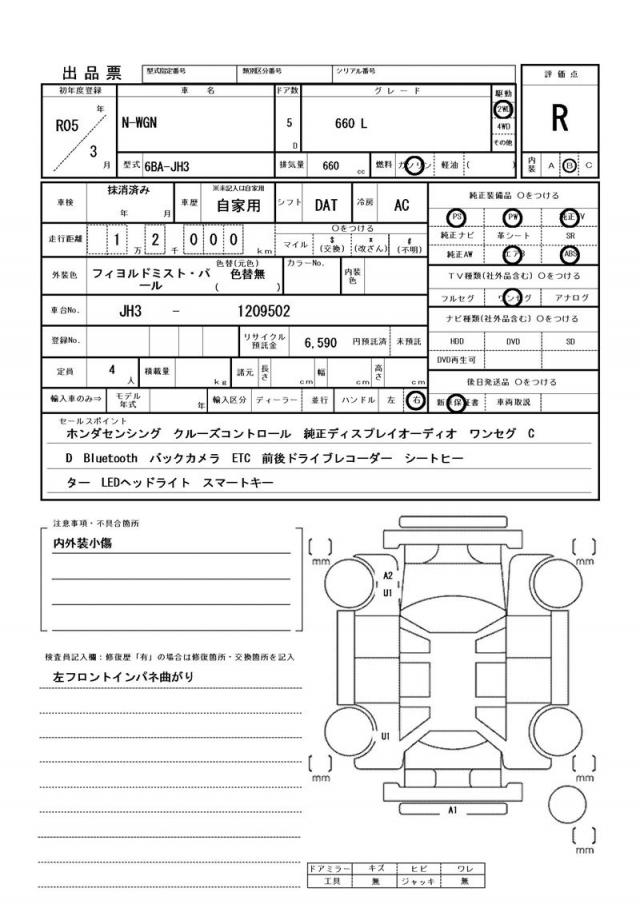 出品票 型式指定番号 類別区分番号 シリアル番号 評価点
初年度登録 車名 ドア数 グレード 駆動
R05 年 N-WGN 5 D 660 L 2WD R
3 月 4WD
その他
型式 6BA-JH3 排気量 660 cc 燃料 ガソリン 軽油 ( ) 内装 A B C
車検 抹消済み 年 月 車歴 ※未記入は自家用 自家用 シフト DAT 冷房 AC 純正装備品 〇をつける
PS PW 純正TV
走行距離 1 万 2 千 0 0 0 km 〇をつける
マイル $ (交換) * (改ざん) # (不明) 純正ナビ 革シート SR
純正AW エアB ABS
外装色 フィヨルドミスト・パール 色替(元色) 色替無 ( ) カラーNo. 内装色 TV種類(社外品含む) 〇をつける
フルセグ ワンセグ アナログ
車台No. JH3 - 1209502 ナビ種類(社外品含む) 〇をつける
登録No. リサイクル預託金 6,590 円預託済 未預託 HDD DVD SD
DVD再生可
定員 4 人 積載量 kg 諸元 長さ cm 幅 cm 高さ cm 後日発送品 〇をつける
輸入車のみ⇒ モデル年式 年 輸入区分 ディーラー 並行 ハンドル 左 右 新車保証書 車両取説
セールスポイント
ホンダセンシング クルーズコントロール 純正ディスプレイオーディオ ワンセグ C
D Bluetooth バックカメラ ETC 前後ドライブレコーダー シートヒー
ター LEDヘッドライト スマートキー
注意事項・不具合箇所
内外装小傷
検査員記入欄:修復歴「有」の場合は修復箇所・交換箇所を記入
左フロントインパネ曲がり
[ ] mm [ ] mm
A2
U1
U1
[ ] mm [ ] mm
A1
[ ] mm
ドアミラー キズ ヒビ ワレ
工具 無 ジャッキ 無